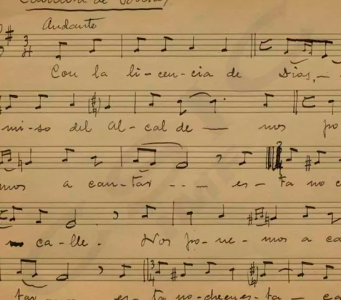 Canción de
Andante
Con la li-cen-cia de Dios,
mi-so del Al-cal de — nos po
mos a can-tar - - - es-ta no c
ca-lle. Nos po-ne-mos a ca
es-ta no-che en es-ta — ca